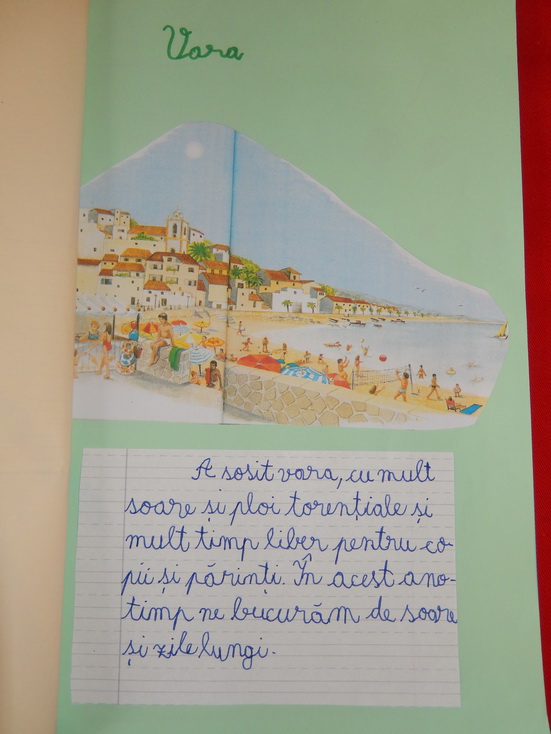 Vara
A sosit vara, cu mult
soare și ploi torențiale și
mult timp liber pentru co-
pii și părinți. În acest ano-
timp ne bucurăm de soare
și zile lungi.